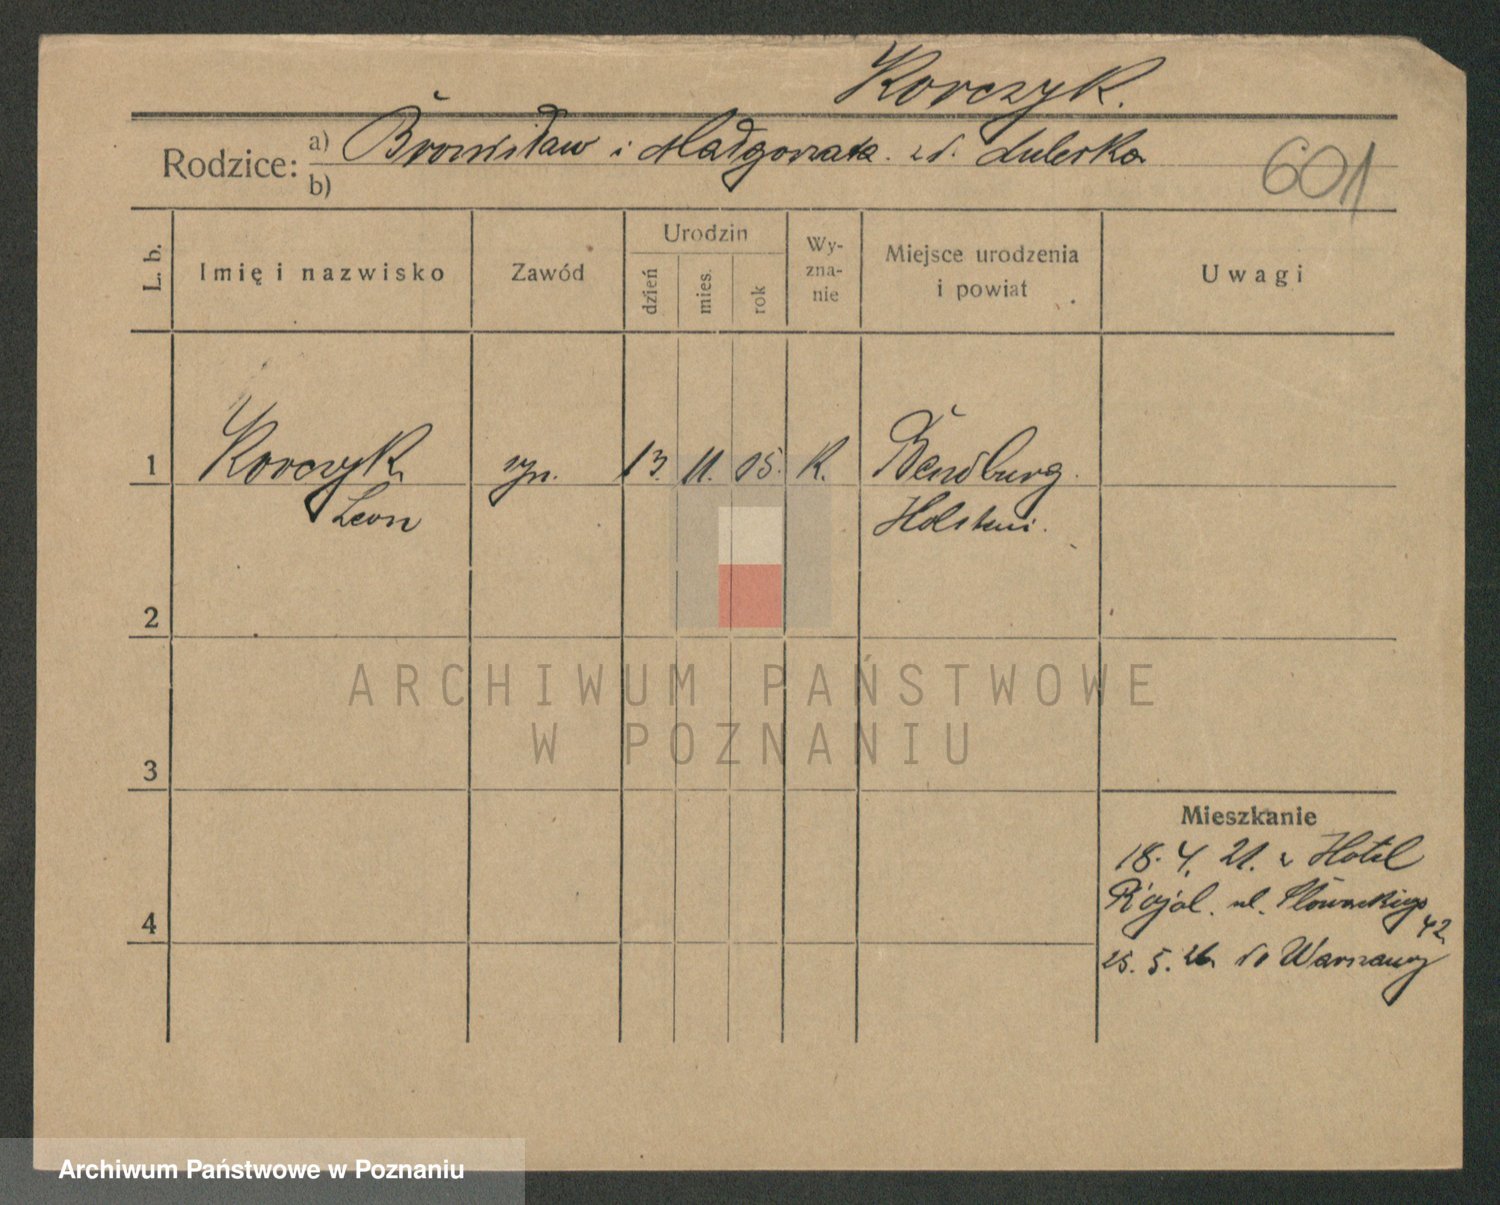 Korczyk.
Rodzice: a) Bronisław i Małgorzata z d. Luleska
b)
601
L. b.
Imię i nazwisko
Zawód
Urodzin
dzień
mies.
rok
Wy-
zna-
nie
Miejsce urodzenia
i powiat
Uwagi
1 Korczyk syn. 13. 11. 05. K. Rendburg.
Leon Holstein.
2
ARCHIWUM PAŃSTWOWE
W POZNANIU
3
Mieszkanie
18. 4. 21. Hotel
Rojal. ul. Słowackiego
42
4
25. 5. 26 do Warszawy
Archiwum Państwowe w Poznaniu